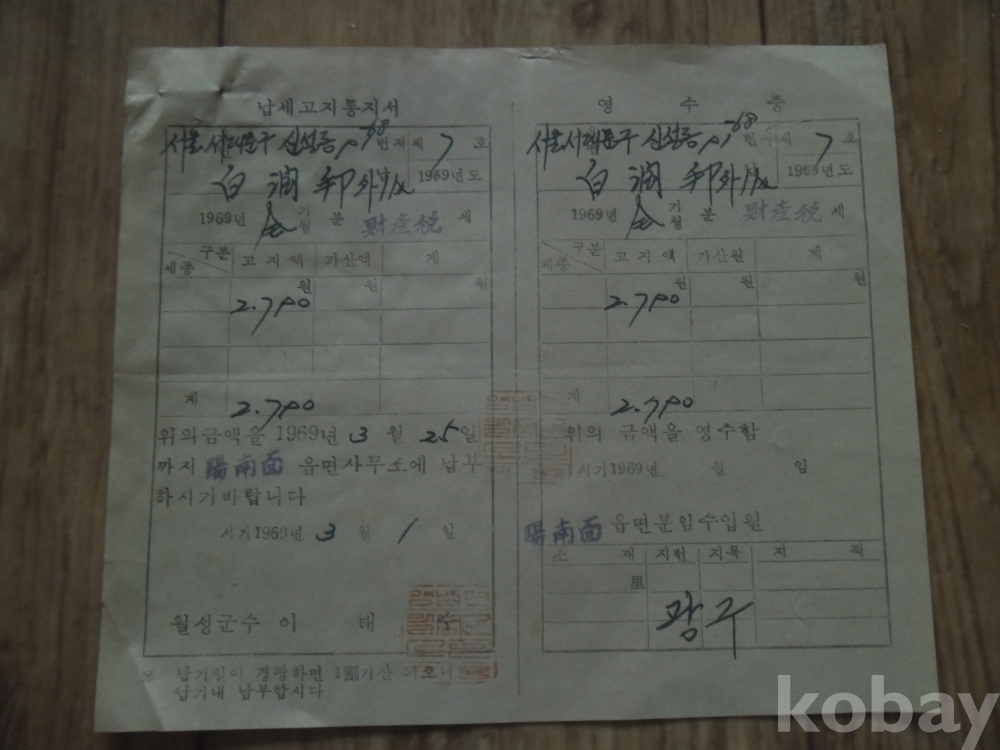 납세고지통지서
서울 서대문구 번지 제 7 호
白潤 外 1969년도
1969년 기 월 분 財産稅 세
구분 세종 고지액 가산액 계
원 원 원
2.790
계 2.790
위의금액을 1969년 3 월 25일
까지 陽南面 읍면사무소에 납부
하시기바랍니다
서기1969년 3 월 1 일
월성군수 이 태
납기일이 경과하면 가산
납기내 납부합시다
영수증
서울 서대문구 번지 제 7 호
白潤 外 1969년도
1969년 기 월 분 財産稅 세
구분 세종 고지액 가산원 계
원 원 원
2.790
계 2.790
위의 금액을 영수함
서기1969년 월 일
陽南面 읍면분임수입원
소 재 지번 지목 지 적
里
광구
kobay